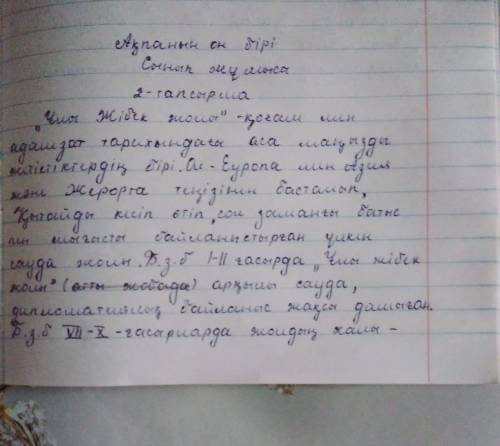 Ақпанын он бірі
Сынып жұмысы
2-тапсырма
„Ұлы Жібек жолы"-қоғам мен
адамзат тарихындағы аса маңызды
жетістіктердің бірі. Ол - Еуропа мен Азия
және Жерорта теңізінен басталып,
Қытайды кесіп өтіп, сол заманғы батыс
пен шығысты байланыстырған үлкен
сауда жолы. Б.з.б I-II ғасырда „Ұлы жібек
жолы" (атты жобада) арқылы сауда,
дипломатиялық байланыс жақсы дамыған.
Б.з.б VII-X-ғасырларда жолдың халы-